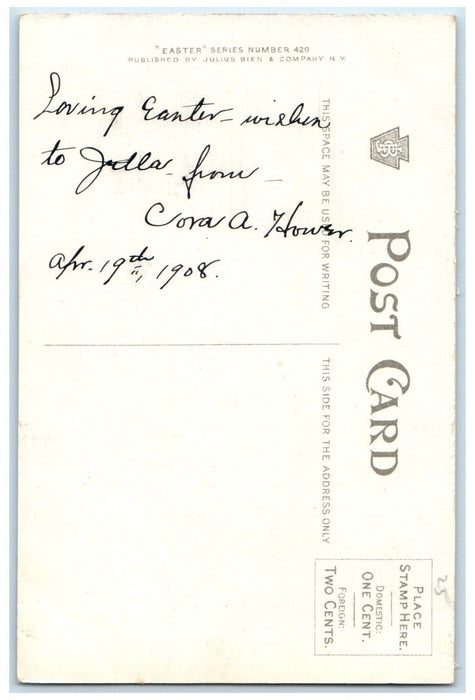 "EASTER" SERIES NUMBER 420
PUBLISHED BY JULIUS BIEN & COMPANY N.Y.
Loving Easter wishes
to Julla from
Cora A. Hower.
Apr. 19th, 1908.
THIS SPACE MAY BE USED FOR WRITING
POST CARD
THIS SIDE FOR THE ADDRESS ONLY
PLACE
STAMP HERE.
DOMESTIC:
ONE CENT.
FOREIGN:
TWO CENTS.
25